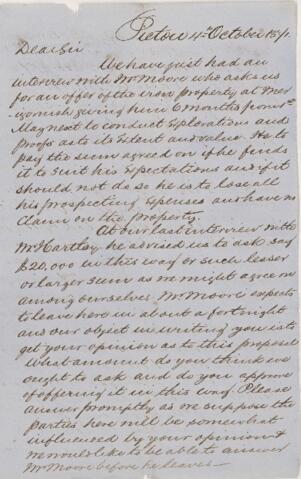 Pictou 4th October 1871.
Dear Sir
We have just had an
interview with Mr Moore who asks us
for an offer of the iron property at Mer
igomish giving him 6 months from 1st
May next to conduct Explorations and
Proofs as to its Extent and value. He to
pay the sum agreed on if he finds
it to suit his Expectations and if it
should not do so he is to lose all
his prospecting Expenses and have no
claim on the property.
At our last interview with
Mr Hartley he advised us to ask say
£20,000 in this way or such lesser
or larger sum as we might agree on
among ourselves. Mr Moore expects
to leave here in about a fortnight
and our object in writing you is to
get your opinion as to this proposal
What amount do you think we
ought to ask and do you approve
of offering it in this way. Please
answer promptly as we suppose the
Parties here will be somewhat
influenced by your opinion &
we would like to be able to answer
Mr Moore before he leaves—